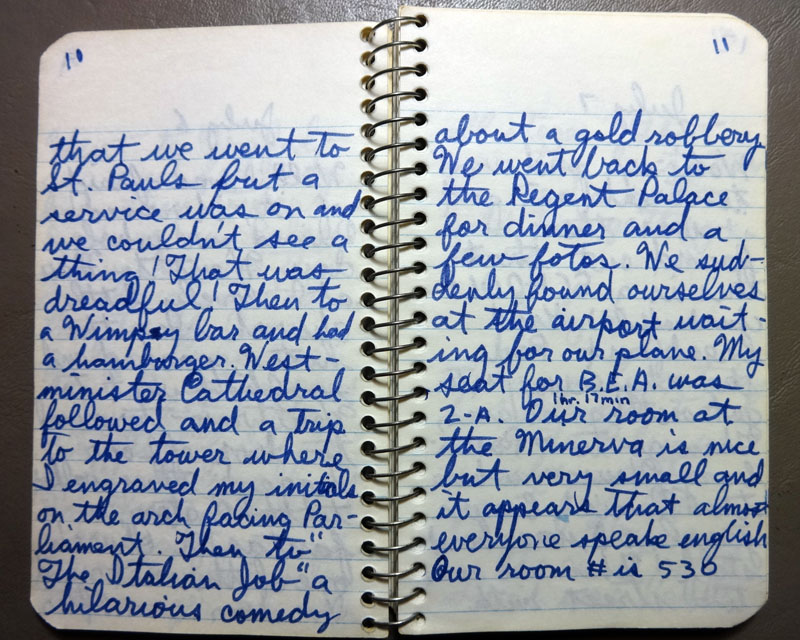 10
that we went to
St. Pauls but a
service was on and
we couldn't see a
thing! That was
dreadful! Then to
a Wimpey bar and had
a hamburger. West-
minister Cathedral
followed and a trip
to the tower where
I engraved my initials
on the arch facing Par-
liament. Then to "
The Italian Job" a
hilarious comedy
11
about a gold robbery.
We went back to
the Regent Palace
for dinner and a
few fotos. We sud-
denly found ourselves
at the airport wait-
ing for our plane. My
seat for B.E.A. was
1 hr. 17 min
2-A. Our room at
the Minerva is nice
but very small and
it appears that almost
everyone speake english
Our room # is 530